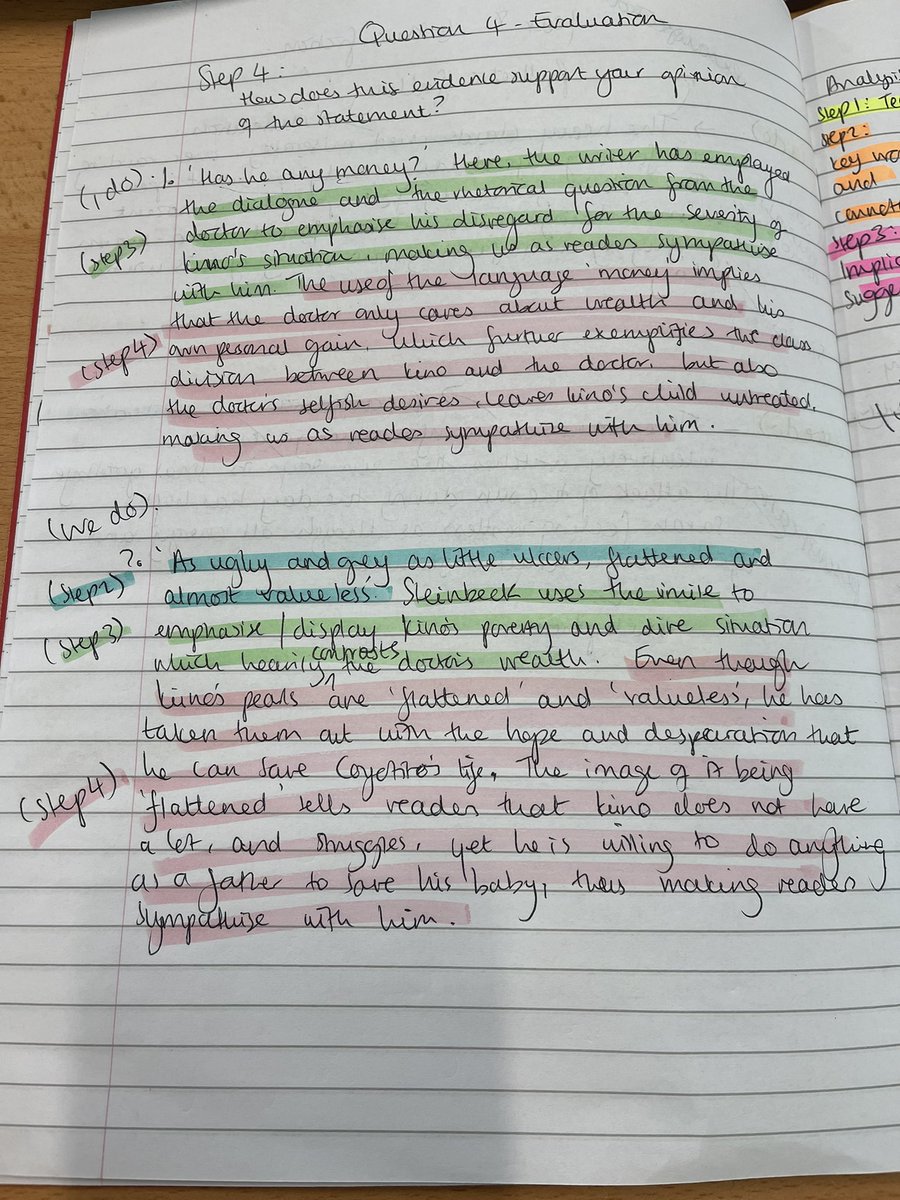 Question 4 - Evaluation
Step 4:
How does this evidence support your opinion
of the statement?
(I do). 1. 'Has he any money?' Here, the writer has employed
the dialogue and the rhetorical question from the
doctor to emphasise his disregard for the severity of
(step3) kino's situation, making us as readers sympathise
with him. The use of the language 'money' implies
that the doctor only cares about wealth and his
(step4) own personal gain, which further exemplifies the class
division between kino and the doctor, but also
the doctor's selfish desires, leaves kino's child untreated,
making us as readers sympathise with him.
(we do).
(step2) ?. 'As ugly and grey as little ulcers, flattened and
almost valueless'. Steinbeck uses the simile to
(step3) emphasise / display kino's poverty and dire situation
which heavily contrasts the doctor's wealth. Even though
kino's pearls are 'flattened' and 'valueless', he has
taken them out with the hope and desperation that
he can save Coyotito's life. The image of it being
(step4) 'flattened' tells readers that kino does not have
a lot, and struggles, yet he is willing to do anything
as a father to save his baby, thus making readers
sympathise with him.
Analysi
Step1: Te
Step2:
key wo
and
connot
Step3:
Implic
sugge